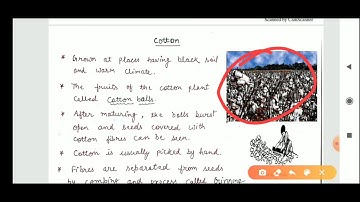 Scanned by CamScanner
Cotton
* Grown at places having black soil
and warm climate.
* The fruits of the cotton plant
called Cotton balls.
* After maturing, the bolls burst
open and seeds covered with
cotton fibres can be seen.
* Cotton is usually picked by hand.
* Fibres are separated from seeds
by combing and process called Ginning